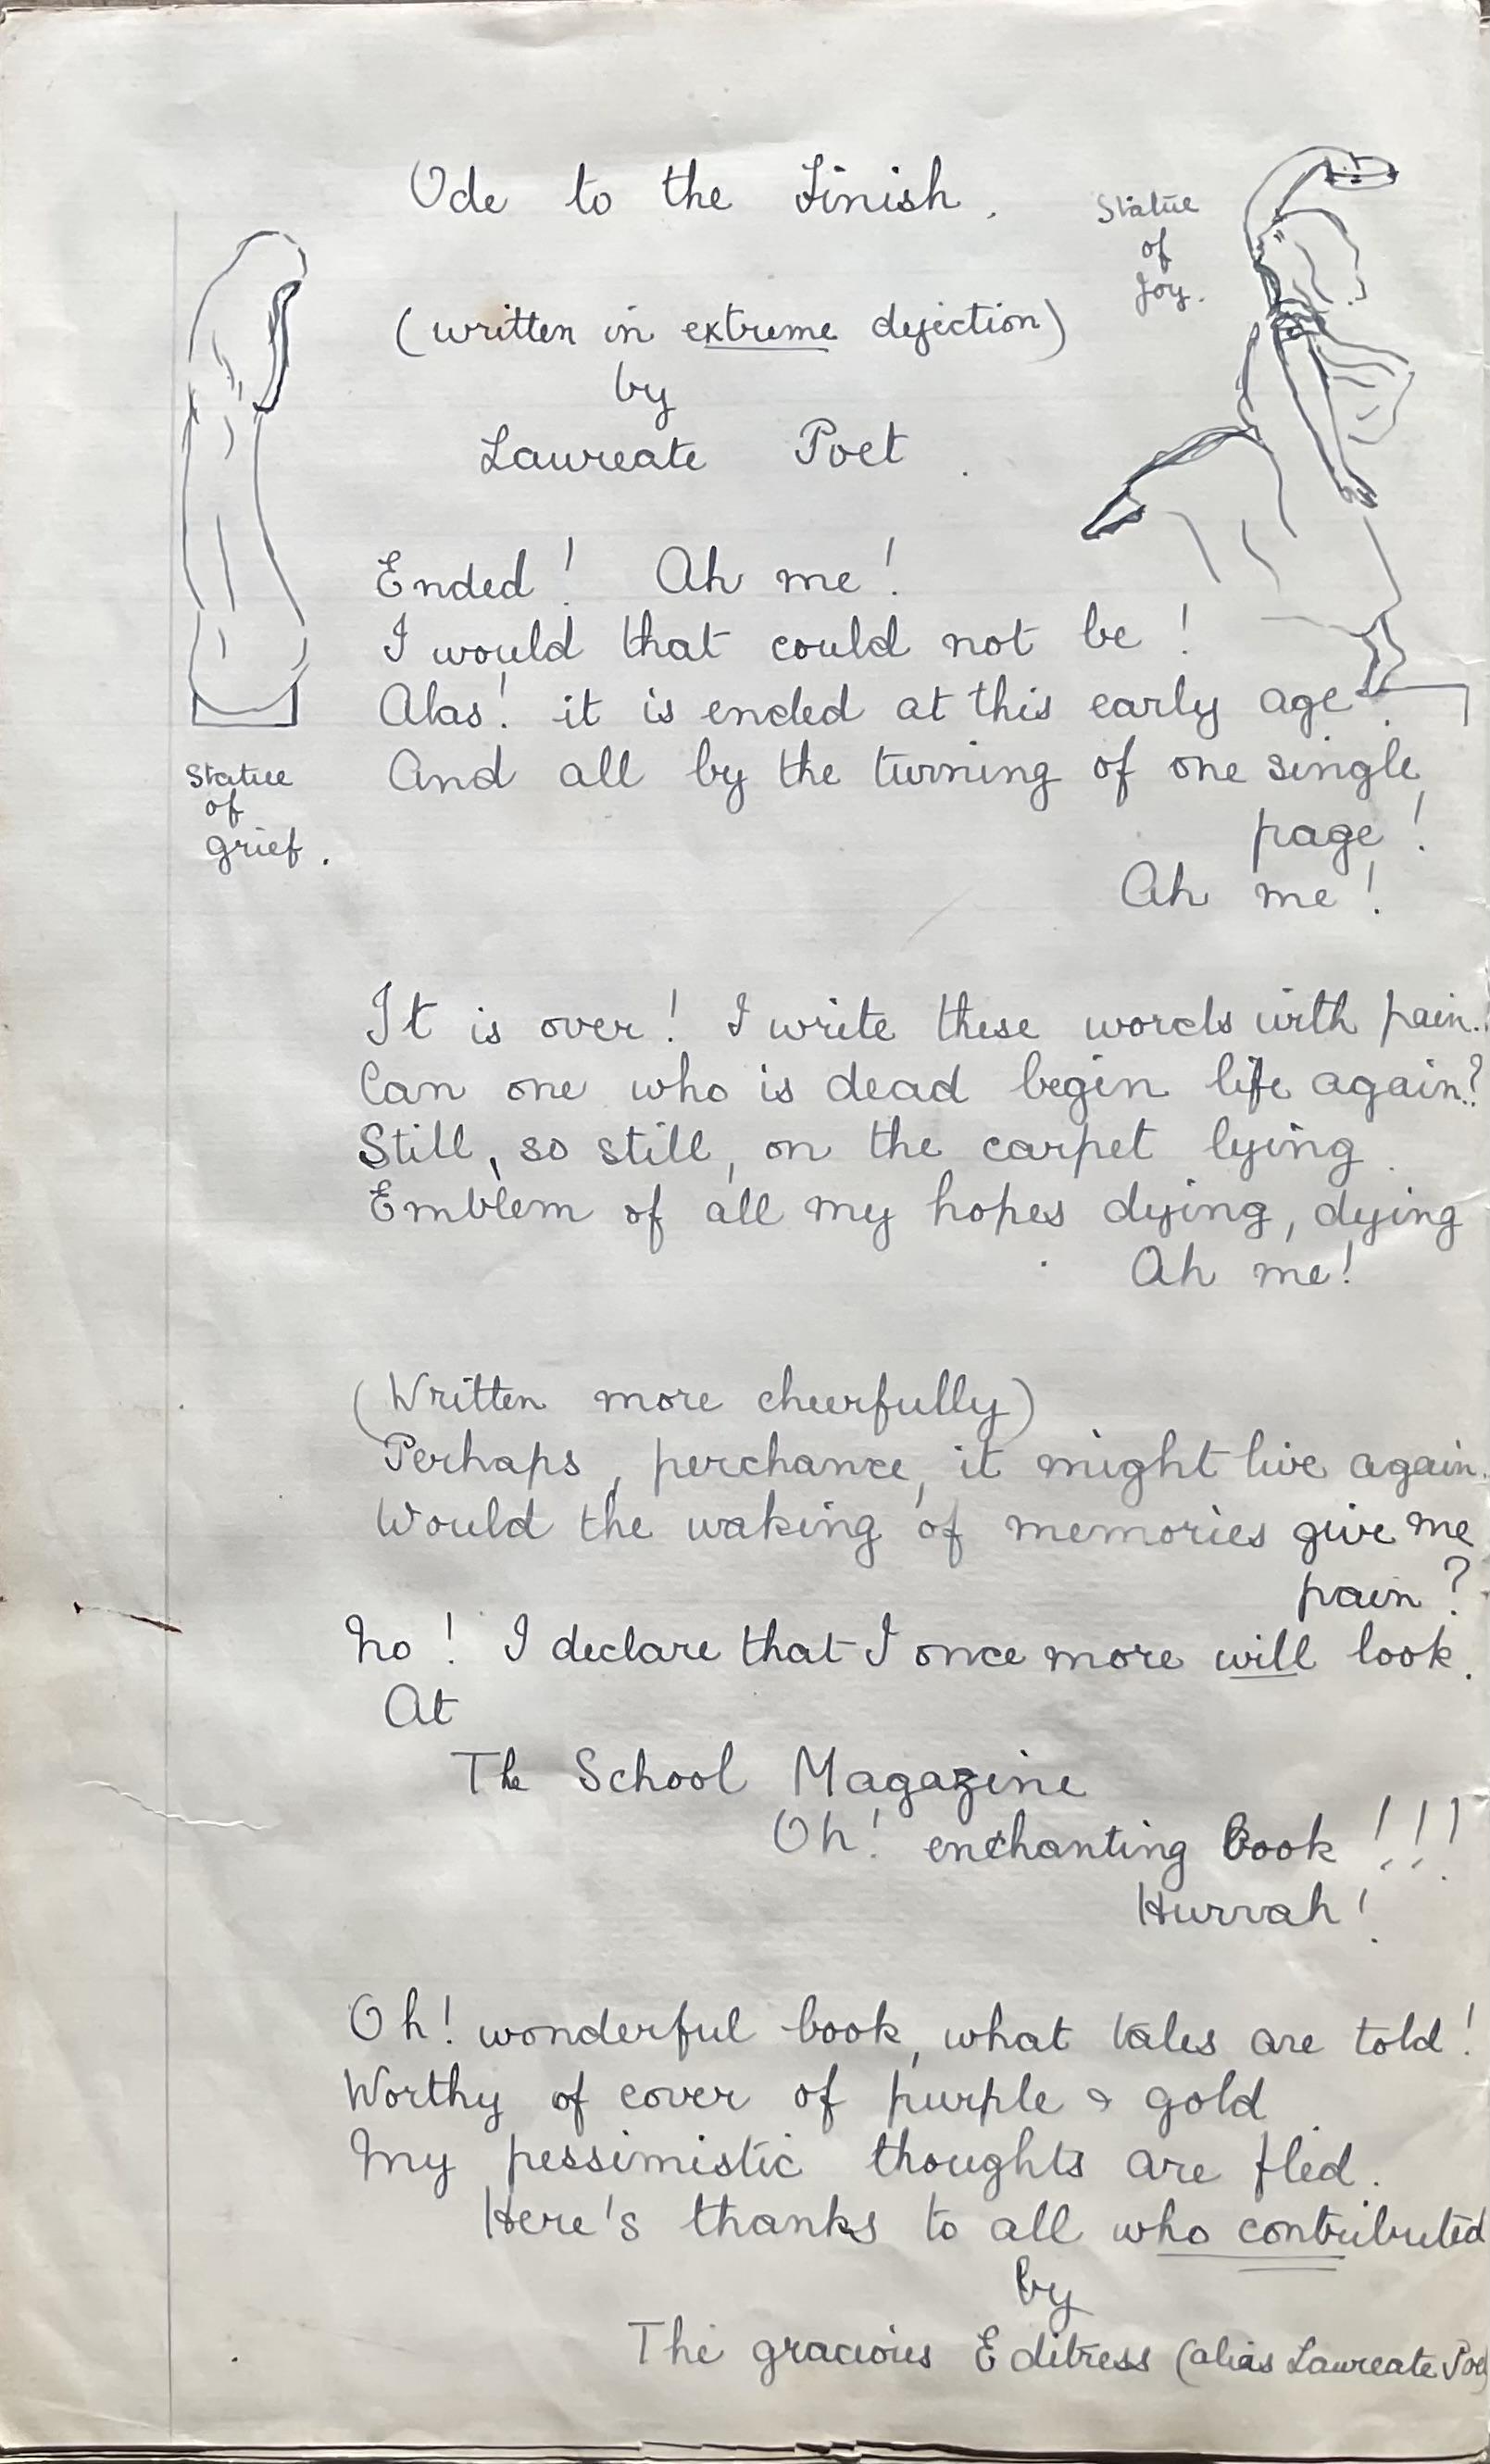 Ode to the Finish.
Statue
of
Joy.
(written in extreme dejection)
by
Laureate Poet.
Ended! Ah me!
I would that could not be!
Alas! it is ended at this early age!
And all by the turning of one single
page!
Ah me!
Statue
of
grief.
It is over! I write these words with pain.
Can one who is dead begin life again?
Still, so still, on the carpet lying.
Emblem of all my hopes dying, dying
Ah me!
(Written more cheerfully)
Perhaps, perchance, it might live again.
Would the waking of memories give me
pain?
No! I declare that I once more will look.
At
The School Magazine
Oh! enchanting book!!!
Hurrah!
Oh! wonderful book, what tales are told!
Worthy of cover of purple & gold
My pessimistic thoughts are fled.
Here's thanks to all who contributed
by
The gracious Editress (alias Laureate Poet)